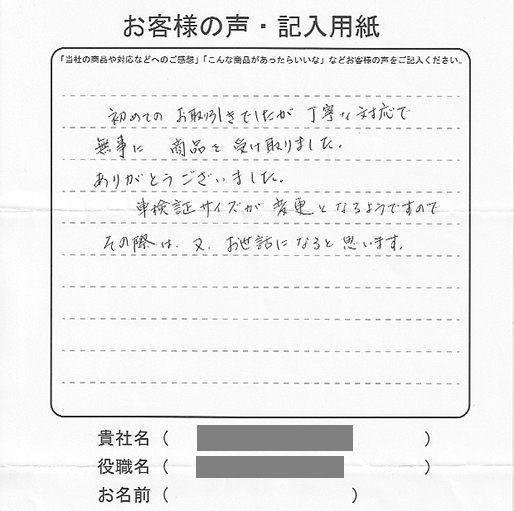 お客様の声・記入用紙
「当社の商品や対応などへのご感想」「こんな商品があったらいいな」などお客様の声をご記入ください。
初めてのお取引きでしたが丁寧な対応で
無事に商品を受け取りました。
ありがとうございました。
車検証サイズが変更となるようですので
その際は、又、お世話になると思います。
貴社名（　　）
役職名（　　）
お名前（　　）